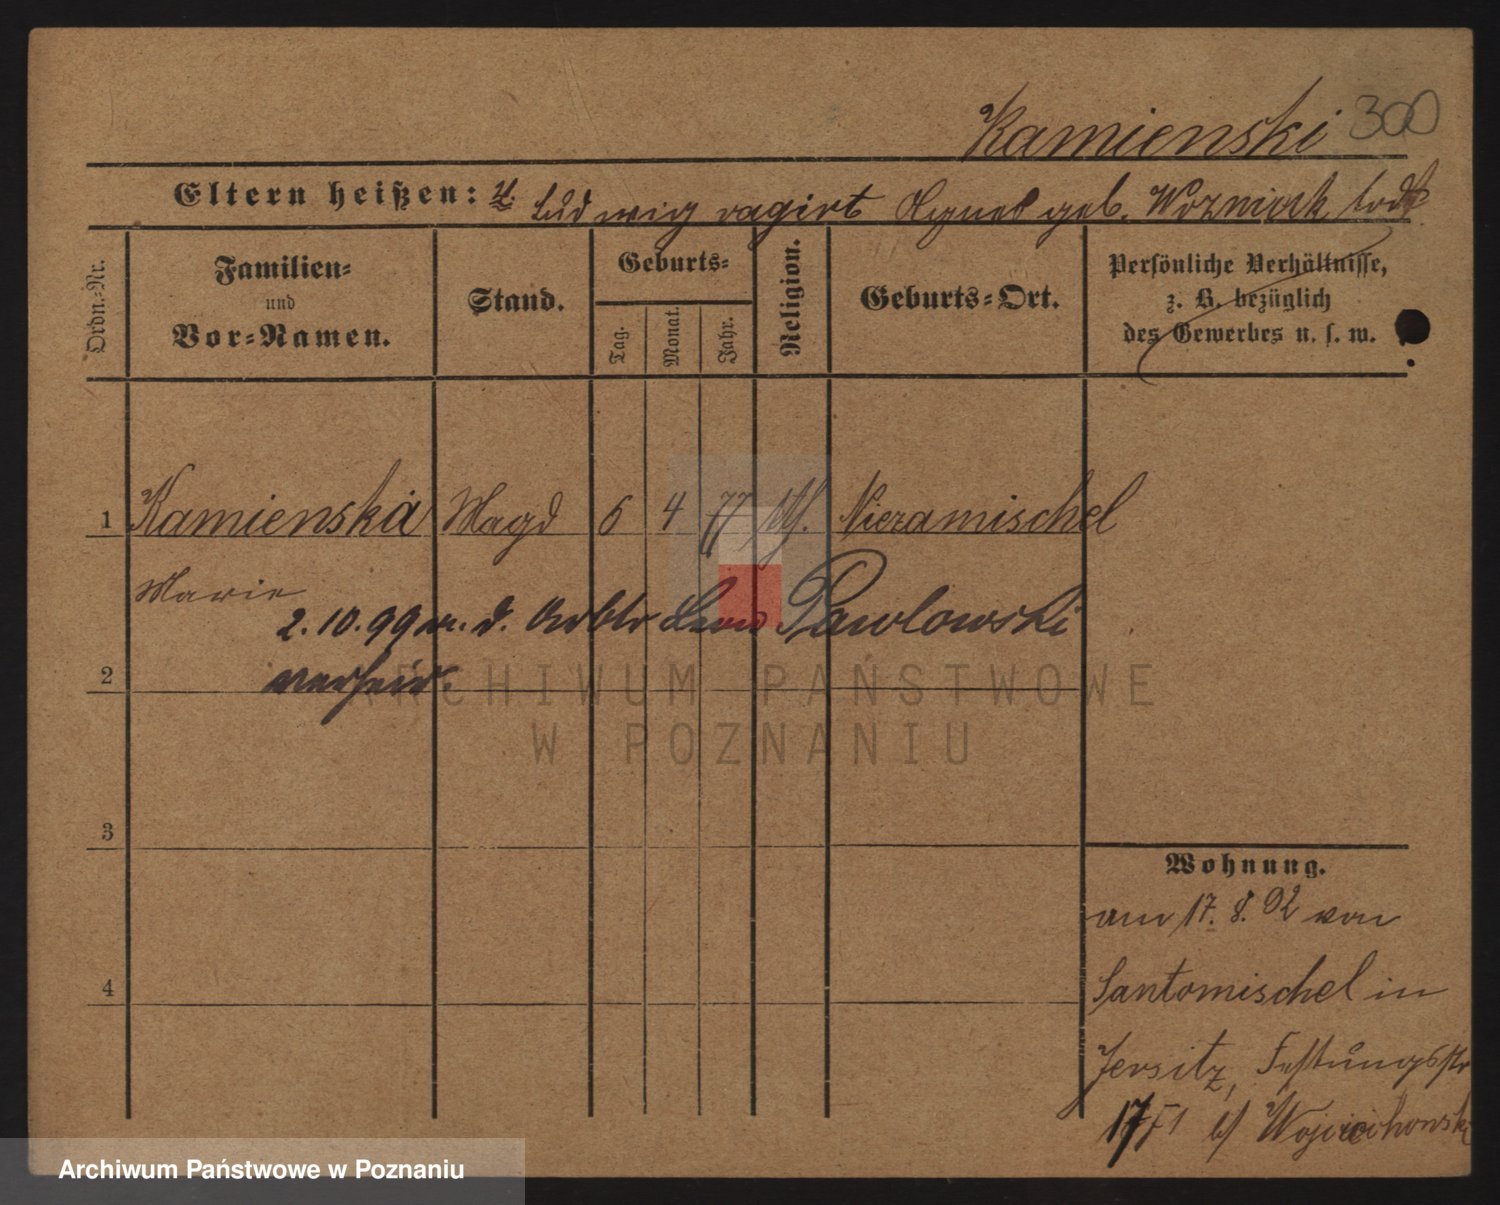 Kamienski 300
Eltern heißen: Ludwig vagirt Agnes geb. Wozniack todt
Ordn.-Nr.
Familien-
und
Vor-Namen.
Stand.
Geburts-
Tag.
Monat.
Jahr.
Religion.
Geburts-Ort.
Persönliche Verhältnisse,
z. B. bezüglich
des Gewerbes u. s. w.
1 Kamienska Magd 6 4 77 kth. Niezamischel
Marie
2.10.99 m. d. Arbtr Leon Pawlowski
2 verheir.
3
4
Wohnung.
am 17. 8. 92 von
Santomischel in
Jersitz, Festungsstr
17 b/ Wojciechowski
ARCHIWUM PAŃSTWOWE
W POZNANIU
Archiwum Państwowe w Poznaniu